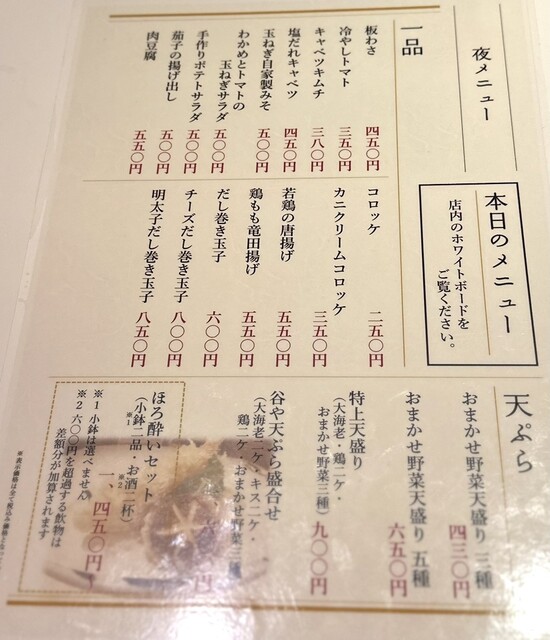 夜メニュー
本日のメニュー
店内のホワイトボードを
ご覧ください。
一品
板わさ 四五〇円
冷やしトマト 三五〇円
キャベツキムチ 三八〇円
塩だれキャベツ 四五〇円
玉ねぎ自家製みそ 五〇〇円
わかめとトマトの
玉ねぎサラダ 五〇〇円
手作りポテトサラダ 五五〇円
茄子の揚げ出し 五〇〇円
肉豆腐 五五〇円
コロッケ 二五〇円
カニクリームコロッケ 三五〇円
若鶏の唐揚げ 五五〇円
鶏もも竜田揚げ 五五〇円
だし巻き玉子 六〇〇円
チーズだし巻き玉子 八〇〇円
明太子だし巻き玉子 八五〇円
天ぷら
おまかせ野菜天盛り 三種 四三〇円
おまかせ野菜天盛り 五種 六五〇円
特上天盛り
(大海老・鶏二ケ・
おまかせ野菜三種) 九〇〇円
谷や天ぷら盛合せ
(大海老二ケ、キス二ケ・
鶏二ケ・おまかせ野菜三種
円
ほろ酔いセット
(小鉢二品※1・お酒二杯※2)
一、四五〇円
※1 小鉢は選べません。
※2 六〇〇円を超過する飲物は
差額分が加算されます
※表示価格は全て税込み価格となって